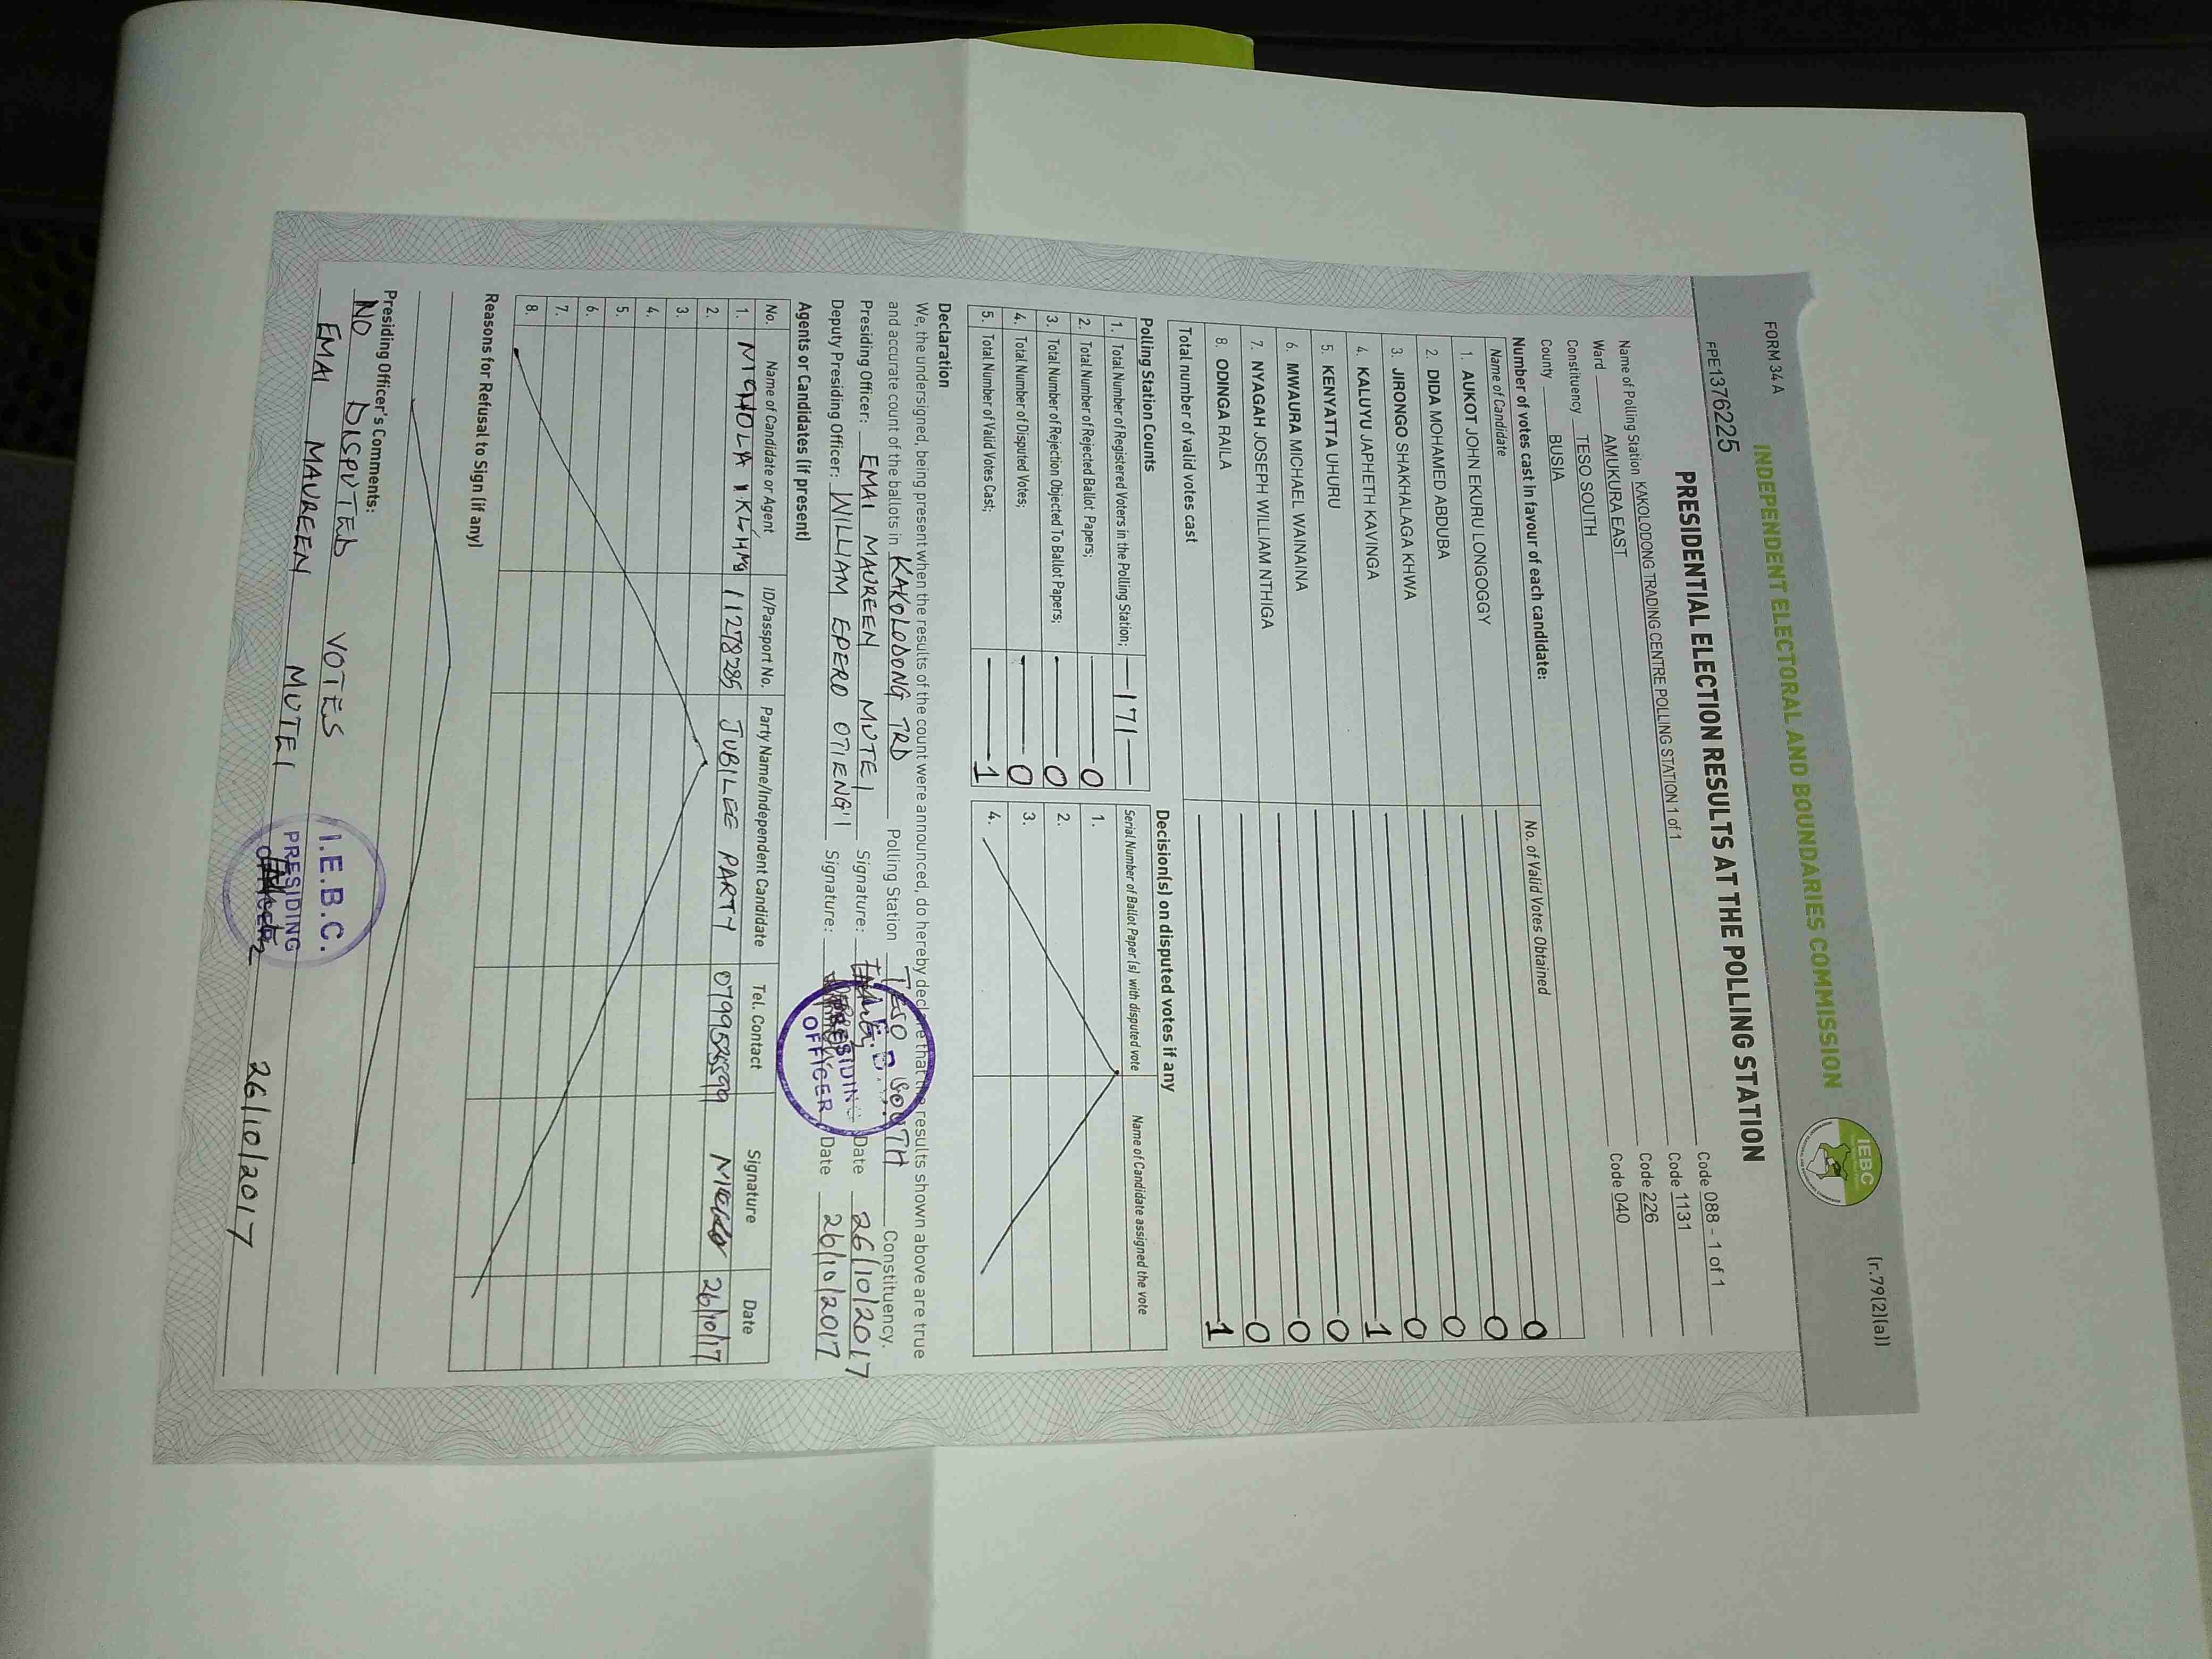 FORM 34 A
(r.79(2)(a))
INDEPENDENT ELECTORAL AND BOUNDARIES COMMISSION
IEBC
FPE1376225
PRESIDENTIAL ELECTION RESULTS AT THE POLLING STATION
Name of Polling Station KAKOLODONG TRADING CENTRE POLLING STATION 1 of 1 Code 088 - 1 of 1
Ward AMUKURA EAST Code 1131
Constituency TESO SOUTH Code 226
County BUSIA Code 040
Number of votes cast in favour of each candidate:
Name of Candidate No. of Valid Votes Obtained
1. AUKOT JOHN EKURU LONGOGGY 0
2. DIDA MOHAMED ABDUBA 0
3. JIRONGO SHAKHALAGA KHWA 0
4. KALUYU JAPHETH KAVINGA 0
5. KENYATTA UHURU 1
6. MWAURA MICHAEL WAINAINA 0
7. NYAGAH JOSEPH WILLIAM NTHIGA 0
8. ODINGA RAILA 0
Total number of valid votes cast 1
Polling Station Counts
1. Total Number of Registered Voters in the Polling Station; 171
2. Total Number of Rejected Ballot Papers; 0
3. Total Number of Rejection Objected To Ballot Papers; 0
4. Total Number of Disputed Votes; 0
5. Total Number of Valid Votes Cast; 1
Decision(s) on disputed votes if any
Serial Number of Ballot Paper(s) with disputed vote Name of Candidate assigned the vote
1.
2.
3.
4.
Declaration
We, the undersigned, being present when the results of the count were announced, do hereby declare that the results shown above are true
and accurate count of the ballots in KAKOLODONG TRD Polling Station TESO SOUTH Constituency.
Presiding Officer: EMAI MAUREEN MUTEI Signature: Date 26/10/2017
Deputy Presiding Officer: WILLIAM EPERO OTIENG'I Signature: Date 26/10/2017
PRESIDING
OFFICER
Agents or Candidates (if present)
No. Name of Candidate or Agent ID/Passport No. Party Name/Independent Candidate Tel. Contact Signature Date
1. 11278285 JUBILEE PARTY 0799525599 26/10/17
2.
3.
4.
5.
6.
7.
8.
Reasons for Refusal to Sign (if any)
Presiding Officer's Comments:
NO DISPUTED VOTES
EMAI MAUREEN MUTEI 26/10/2017
I.E.B.C.
PRESIDING